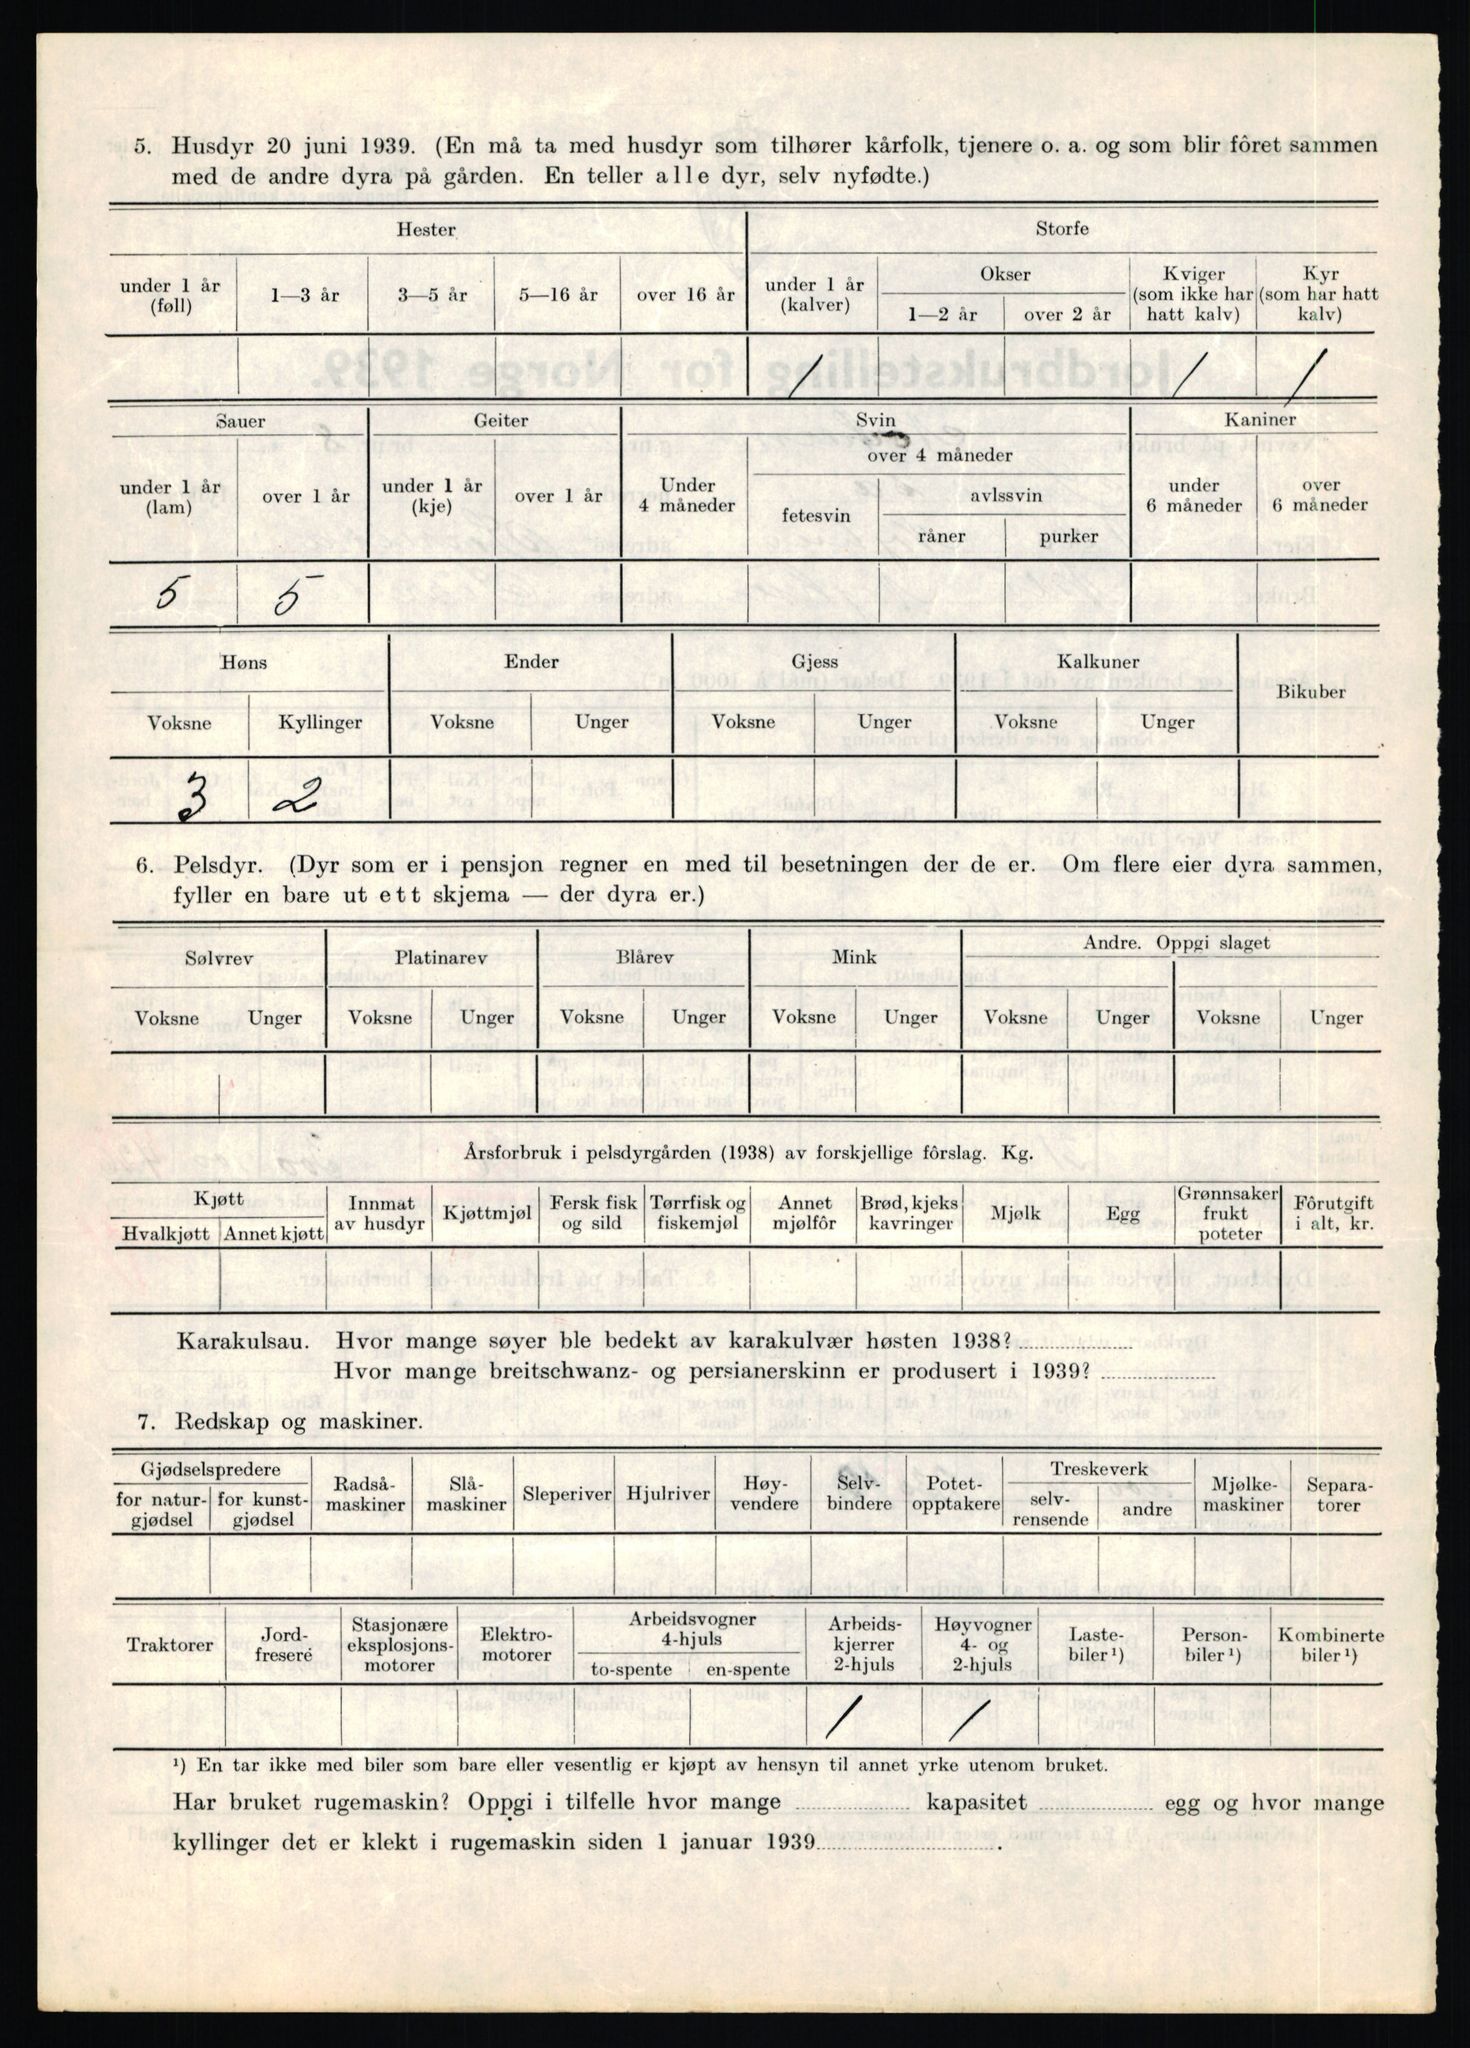 5. Husdyr 20 juni 1939. (En må ta med husdyr som tilhører kårfolk, tjenere o. a. og som blir fôret sammen
med de andre dyra på gården. En teller alle dyr, selv nyfødte.)
Hester Storfe
under 1 år (føll) 1—3 år 3—5 år 5—16 år over 16 år under 1 år (kalver) Okser 1—2 år over 2 år Kviger (som ikke har hatt kalv) Kyr (som har hatt kalv)
1 1 1
Sauer Geiter Svin Kaniner
over 4 måneder
under 1 år (lam) over 1 år under 1 år (kje) over 1 år Under 4 måneder fetesvin avlssvin råner purker under 6 måneder over 6 måneder
5 5
Høns Ender Gjess Kalkuner Bikuber
Voksne Kyllinger Voksne Unger Voksne Unger Voksne Unger
3 2
6. Pelsdyr. (Dyr som er i pensjon regner en med til besetningen der de er. Om flere eier dyra sammen,
fyller en bare ut ett skjema — der dyra er.)
Sølvrev Platinarev Blårev Mink Andre. Oppgi slaget
Voksne Unger Voksne Unger Voksne Unger Voksne Unger Voksne Unger Voksne Unger
Årsforbruk i pelsdyrgården (1938) av forskjellige fôrslag. Kg.
Kjøtt Hvalkjøtt Annet kjøtt Innmat av husdyr Kjøttmjøl Fersk fisk og sild Tørrfisk og fiskemjøl Annet mjølfôr Brød, kjeks kavringer Mjølk Egg Grønnsaker frukt poteter Fôrutgift i alt, kr.
Karakulsau. Hvor mange søyer ble bedekt av karakulvær høsten 1938?
Hvor mange breitschwanz- og persianerskinn er produsert i 1939?
7. Redskap og maskiner.
Gjødselspredere for natur-gjødsel for kunst-gjødsel Radså-maskiner Slå-maskiner Sleperiver Hjulriver Høy-vendere Selv-bindere Potet-opptakere Treskeverk selv-rensende andre Mjølke-maskiner Separa-torer
Traktorer Jord-fresere Stasjonære eksplosjons-motorer Elektro-motorer Arbeidsvogner 4-hjuls to-spente en-spente Arbeids-kjerrer 2-hjuls Høyvogner 4- og 2-hjuls Laste-biler ¹) Person-biler ¹) Kombinerte biler ¹)
1 1
¹) En tar ikke med biler som bare eller vesentlig er kjøpt av hensyn til annet yrke utenom bruket.
Har bruket rugemaskin? Oppgi i tilfelle hvor mange kapasitet egg og hvor mange
kyllinger det er klekt i rugemaskin siden 1 januar 1939 .